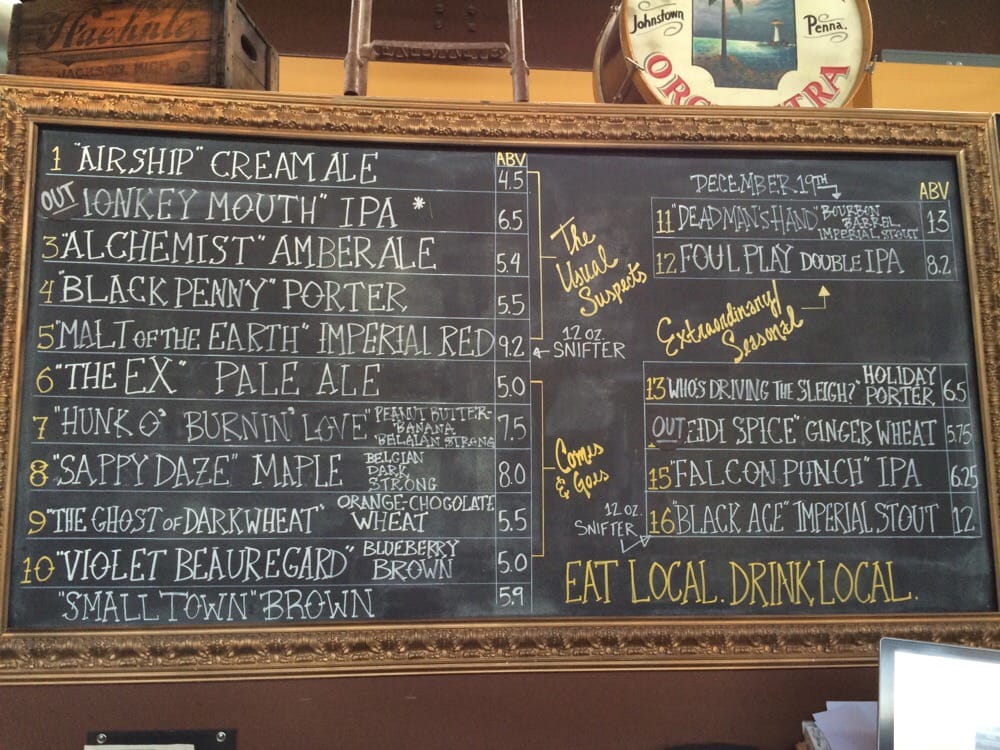 Haehnle
JACKSON, MICH.
Johnstown Penna.
ORCHESTRA
ABV
1 "AIRSHIP" CREAM ALE 4.5
OUT IONKEY MOUTH" IPA * 6.5
3 "ALCHEMIST" AMBER ALE 5.4
4 "BLACK PENNY" PORTER 5.5
5 "MALT OF THE EARTH" IMPERIAL RED 9.2
6 "THE EX" PALE ALE 5.0
7 "HUNK O' BURNIN' LOVE" PEANUT BUTTER-
BANANA
BELGIAN STRONG 7.5
8 "SAPPY DAZE" MAPLE BELGIAN
DARK
STRONG 8.0
9 "THE GHOST OF DARKWHEAT" ORANGE-CHOCOLATE
WHEAT 5.5
10 "VIOLET BEAUREGARD" BLUEBERRY
BROWN 5.0
"SMALL TOWN" BROWN 5.9
The
Usual
Suspects
12 OZ.
SNIFTER
Comes
& Goes
DECEMBER 19TH
ABV
11 "DEADMAN'S HAND" BOURBON
BARREL
IMPERIAL STOUT 13
12 FOUL PLAY DOUBLE IPA 8.2
Extraordinary/
Seasonal
13 "WHO'S DRIVING THE SLEIGH?" HOLIDAY
PORTER 6.5
OUT EIDI SPICE" GINGER WHEAT 5.75
15 "FALCON PUNCH" IPA 6.25
12 OZ.
SNIFTER
16 "BLACK ACE" IMPERIAL STOUT 12
EAT LOCAL. DRINK LOCAL.